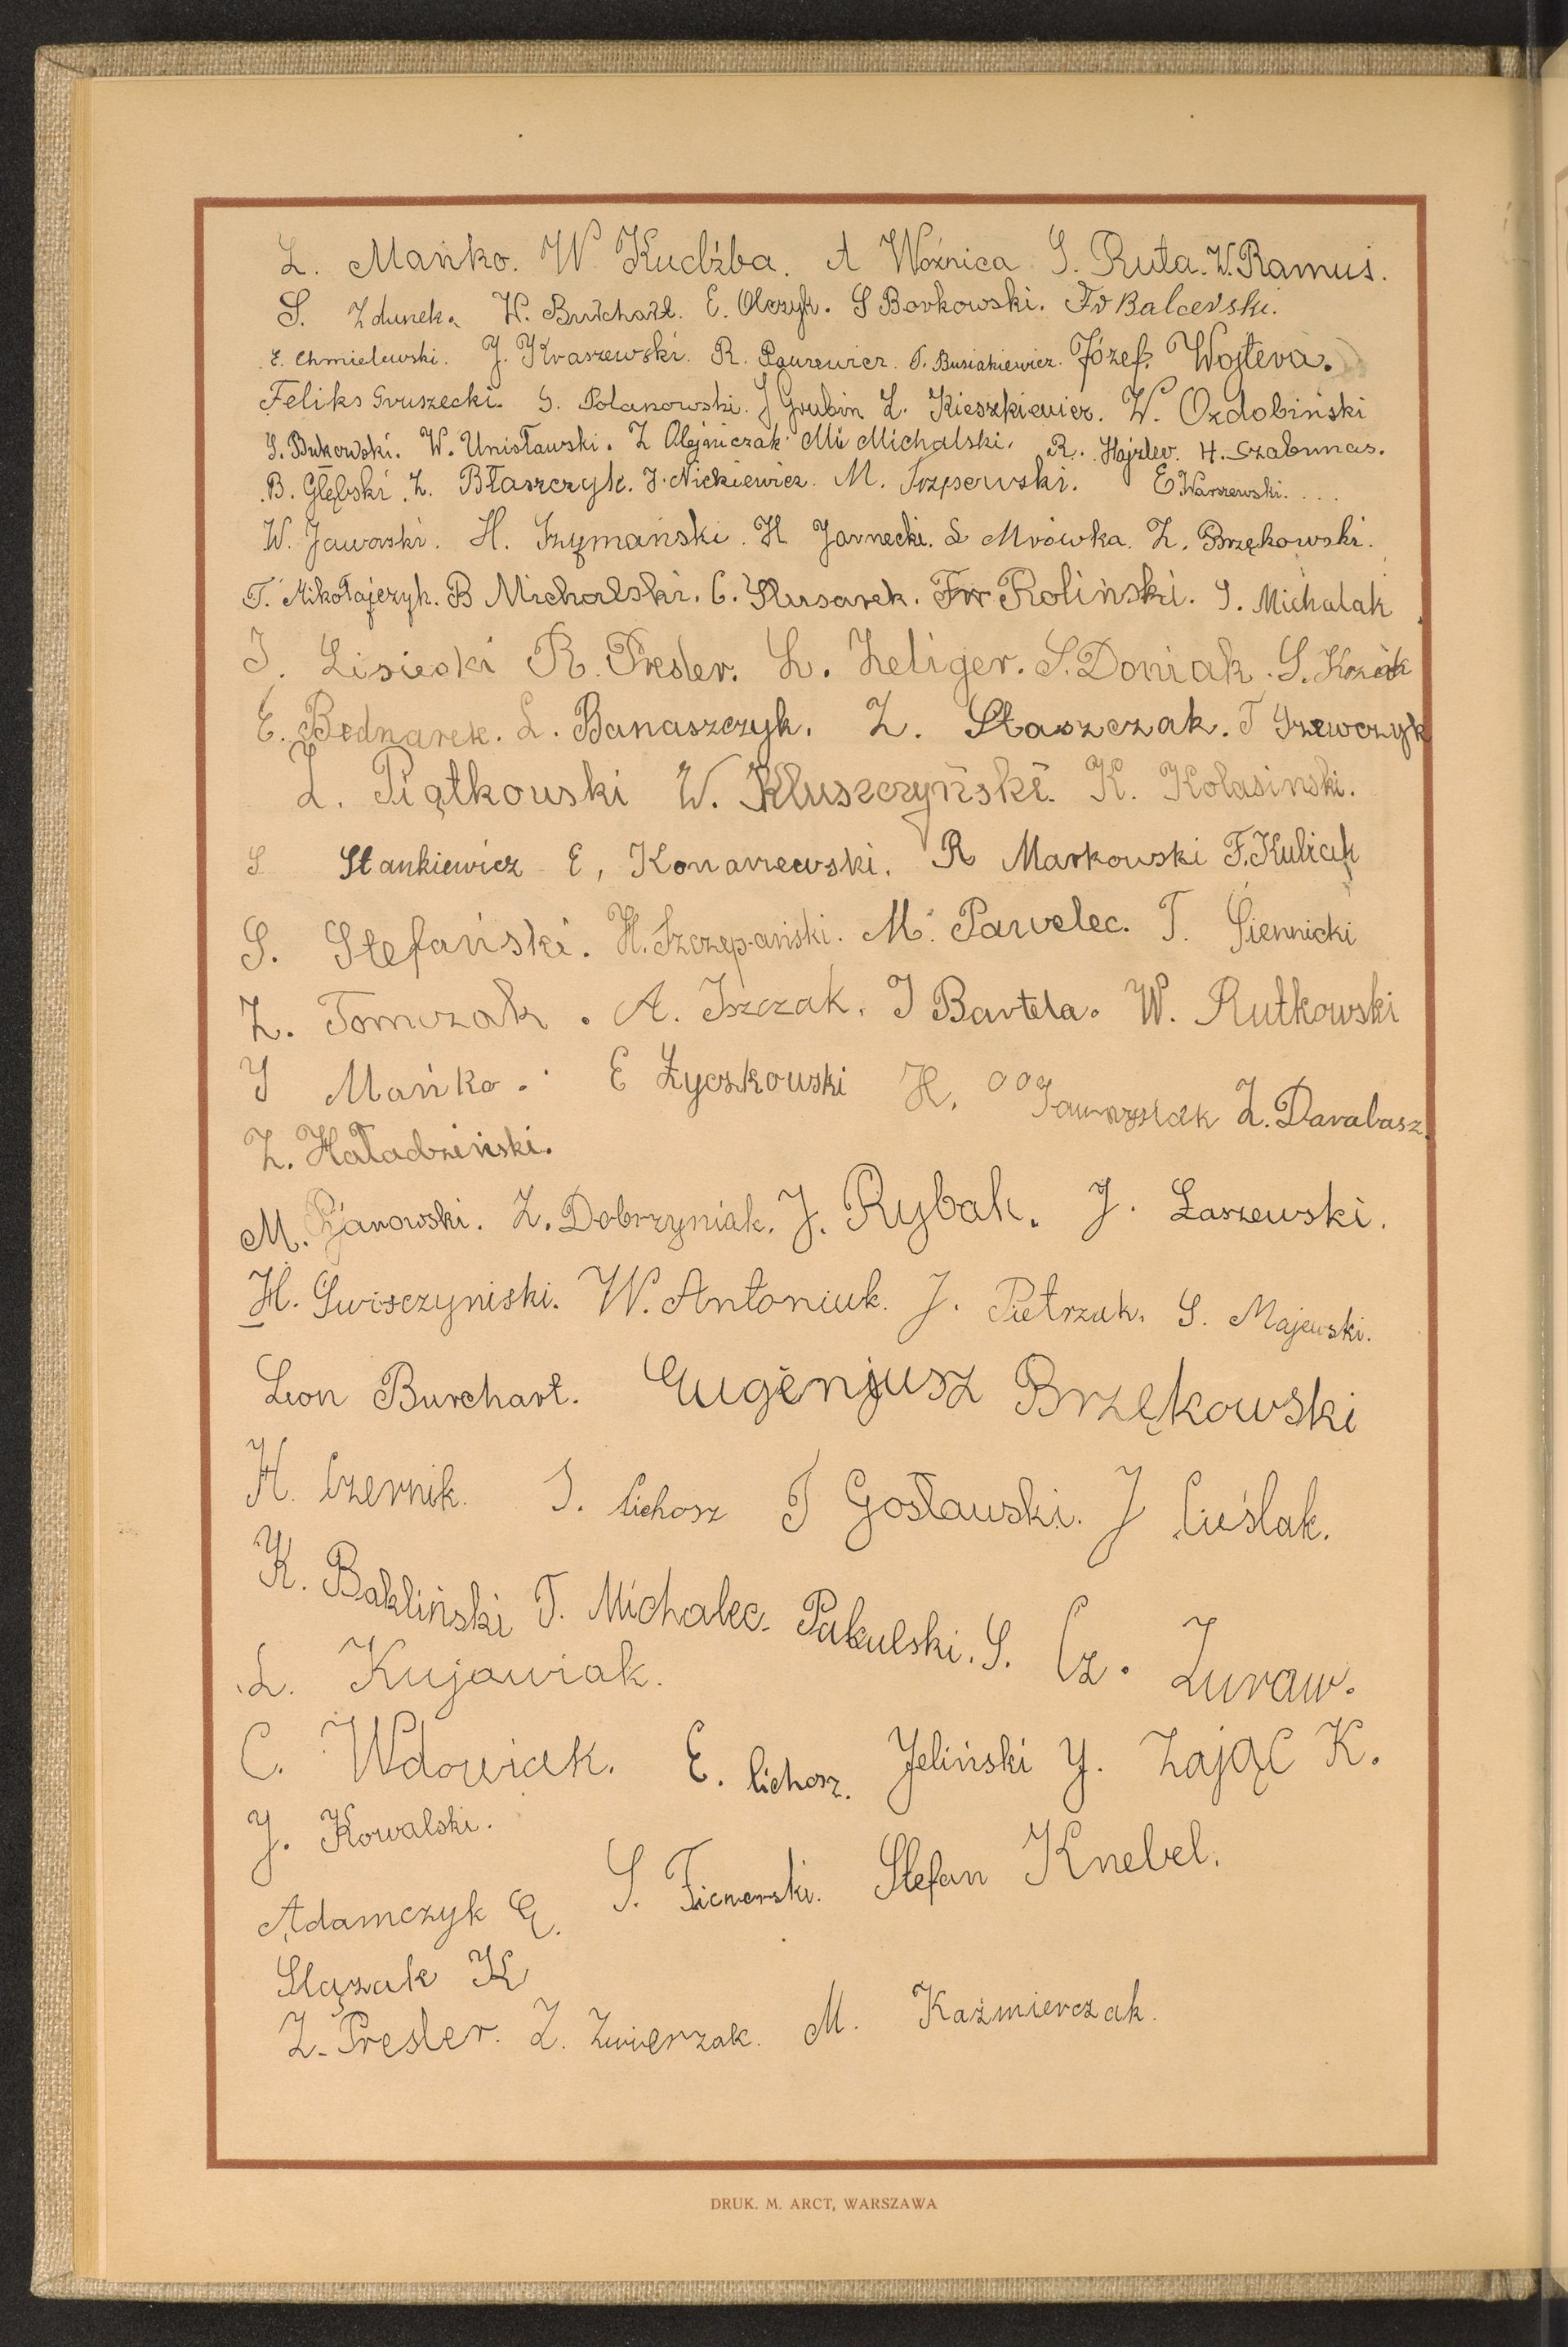 Z. Mańko. W Kudźba. A Woźnica S. Ruta. W. Ramus.
S. Zdunek. W. Burchart. E. Olczyk. S Borkowski. Fr Balcerski.
E. Chmielewski. J. Kraszewski. R. Paurewicz. T. Busiakiewicz. Józef. Wojtera.
Feliks Gruszecki. S. Polanowski. J Grubin Z. Kieszkiewicz. W. Ozdobiński
S. Bukowski. W. Unisławski. Z Olejniczak Mi Michalski. R. Hajzler. H. Szabunas.
B. Głębski. Z. Błaszczyk. J. Nickiewicz. M. E. Warszewski.
W. Jaworski. H. Szymański. H Jarnecki. S Mrówka. Z. Brzękowski.
T. Mikołajczyk. B Michalski. C. Ślusarek. Fr Roliński. S. Michalak
J. Lisiecki R. Presler. Z. Zeliger. S. Doniak. S. Koziak
E. Bednarek. L. Banaszczyk. Z. Staszczak. T Szewczyk
Z. Piątkowski W. Kluszczyński. K. Kolasinski.
S Stankiewicz E, Konarzewski. R Markowski F. Kulicik
S. Stefański. H. Szczepański. M. Parvelec. T. Siennicki
Z. Tomczak. A. Iszczak. J Bartela. W. Rutkowski
J Mańko. E Życzkowski H. Z. Darabasz.
Z. Haładziński.
M. Pjanowski. Z. Dobrzyniak. J. Rybak. J. Łaszewski.
H. Świsczyniski. W. Antoniuk. J. Pietrzak. S. Majewski.
Leon Burchart. Eugenjusz Brzękowski
H. Czernik. J. Cichosz T Gosławski. J Cieślak.
K. Bakliński T. Michalec. Pakulski. S. Cz. Żuraw.
L. Kujawiak.
C. Wdowiak. E. Cichosz. Jeliński J. Zając K.
J. Kowalski.
Adamczyk E. S. Ficnerski. Stefan Knebel.
Ślązak K
Z. Presler. Z. Zwierzak. M. Kaźmierczak.
DRUK. M. ARCT, WARSZAWA